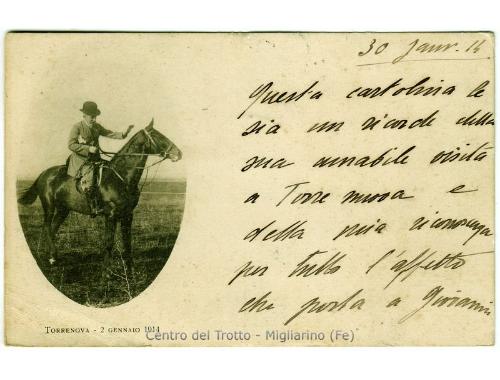 30 Janr. 14
Questa cartolina le
sia un ricordo della
sua amabile visita
a Torre nuova e
della mia riconoscenza
per tutto l'affetto
che porta a Giovanni
TORRENOVA - 2 GENNAIO 1914
Centro del Trotto - Migliarino (Fe)